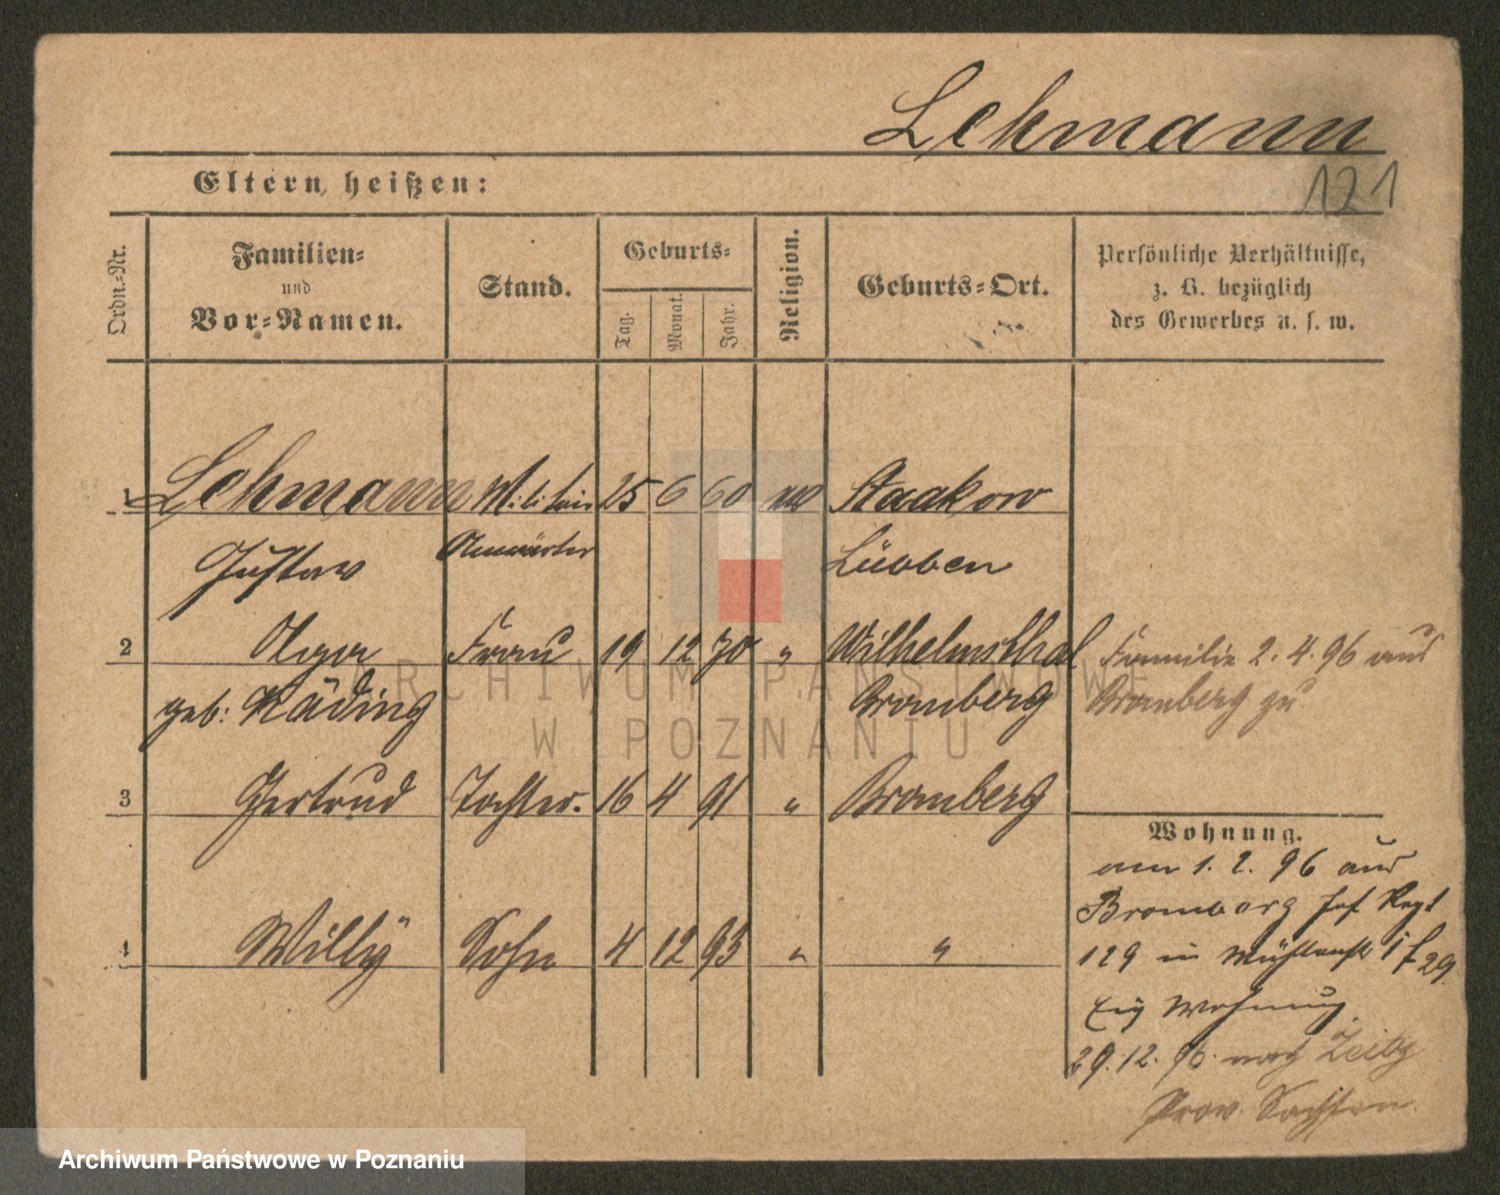 Lehmann
121
Eltern heißen:
Ordn.-Nr.
Familien-
und
Vor-Namen.
Stand.
Geburts-
Tag.
Monat.
Jahr.
Religion.
Geburts-Ort.
Persönliche Verhältnisse,
z. B. bezüglich
des Gewerbes u. s. w.
1 Lehmann Militair 25 6 60 Staakow
Gustav Anwärter Lübben
2 Olga Frau 19 12 70 " Wilhelmsthal
geb: Käding Bromberg
Familie 2. 4. 96 aus
Bromberg zu
3 Gertrud Tochter. 16 4 91 " Bromberg
4 Willy Sohn 4 12 93 " "
Wohnung.
am 1. 2. 96 aus
Bromberg Inf Regt
129 in Mühlenstr
Wohnung
29. 12. 96. nach Zeitz
Prov. Sachsen
ARCHIWUM PAŃSTWOWE
W POZNANIU
Archiwum Państwowe w Poznaniu